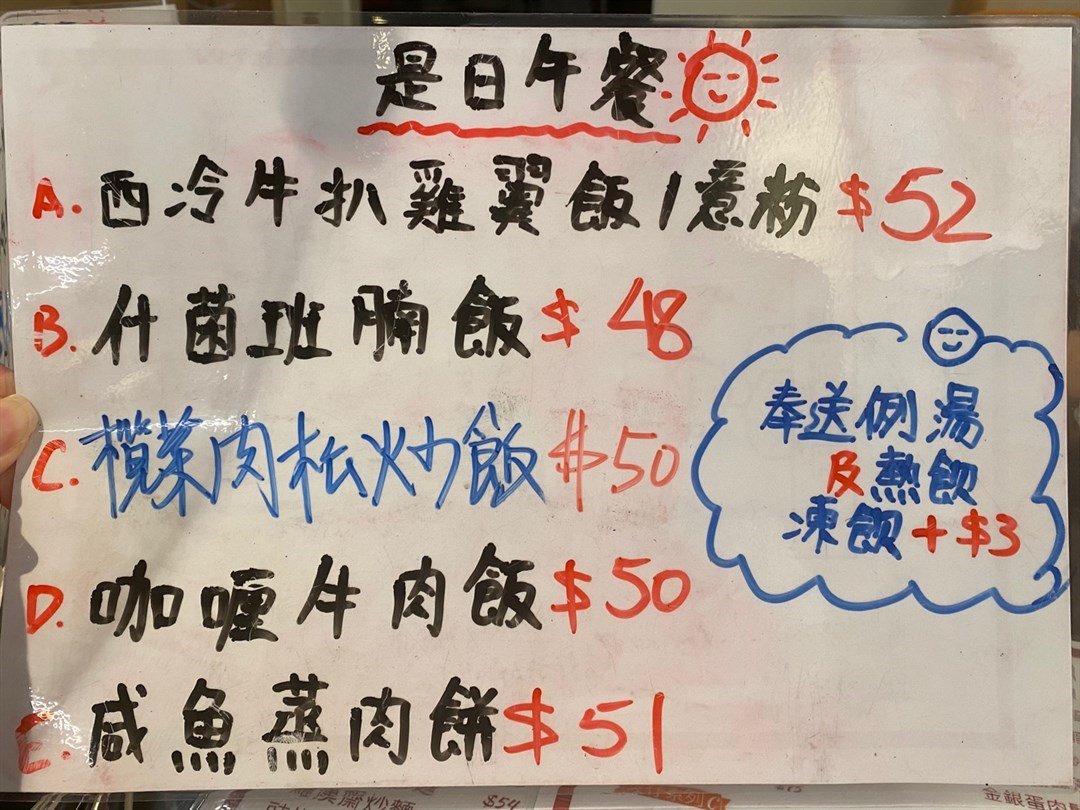 是日午餐
A. 西冷牛扒雞翼飯/意粉 $52
B. 什菌班腩飯 $48
C. 欖菜肉松炒飯 $50
D. 咖喱牛肉飯 $50
E. 咸魚蒸肉餅 $51
奉送例湯
及熱飲
凍飲+$3
炒麵
$54
金銀蛋肉